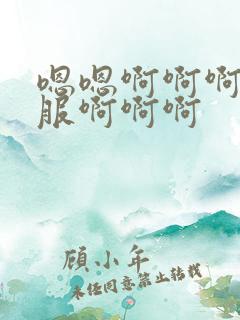 嗯嗯啊啊啊
服啊啊啊
顾小年
未经同意禁止转载